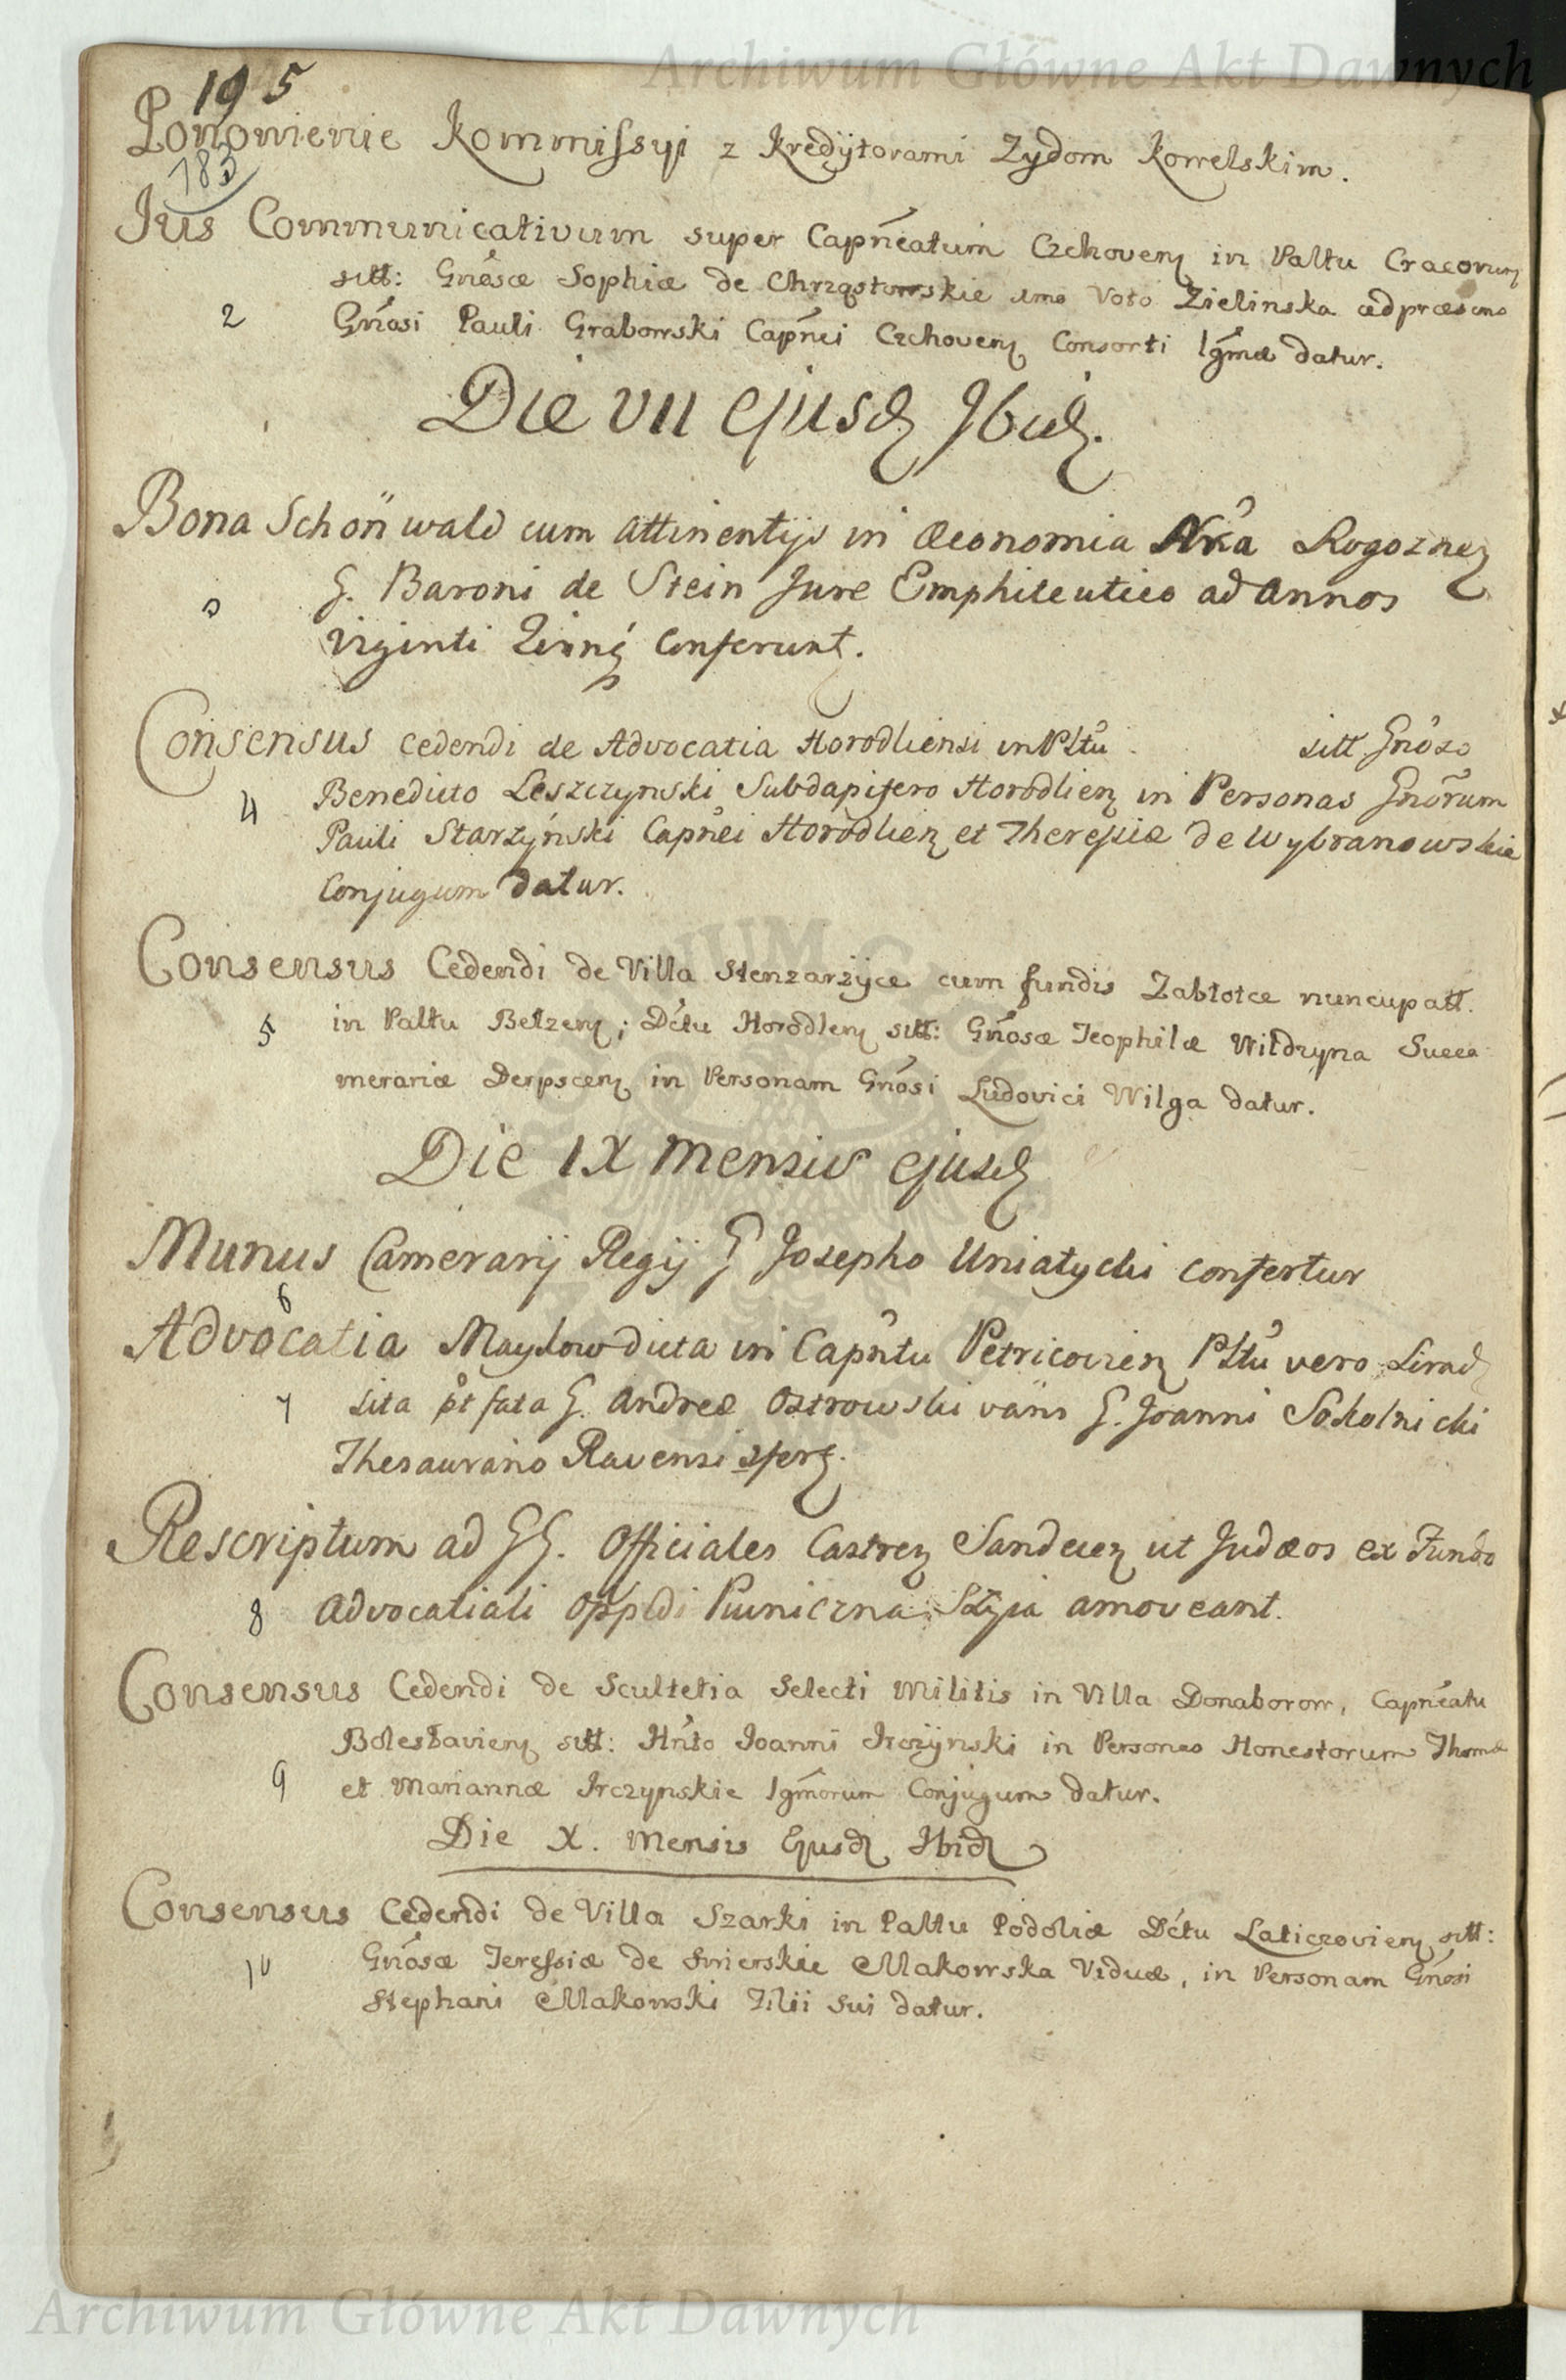 Archiwum Główne Akt Dawnych
195
Ponowienie Kommissyi z Kredytorami Zydom Kowelskim.
783
Jus Communicativum super Capneatum Czchoven in Paltu Cracovien
sitt: Gnosæ Sophiæ de Chrząstowskie imo Voto Zielinska ad præsens
2 Gnosi Pauli Grabowski Capnei Czchoven Consorti lgmæ datur.
Die VII ejusd Ibid.
Bona Schönwald cum attinentijs in Œconomia Nra Rogoznen
3 G. Baroni de Stein Jure Emphiteutico ad Annos
viginti Conferunt.
Consensus cedendi de Advocatia Horodliensi in Pltu sitt Gnoso
4 Benedicto Leszczynski Subdapifero Horodlien in Personas Gnorum
Pauli Starzyński Capnei Horodlien et Theresiæ de Wybranowskie
Conjugum datur.
Consensus Cedendi de Villa Stenzarzyce cum fundis Zabłotce nuncupatt.
5 in Paltu Belzen; Dctu Horodlen sitt: Gnosæ Teophilæ Wildzyna Succa
merariæ Derpscen in Personam Gnosi Ludovici Wilga datur.
Die IX mensis ejusd
Munus Camerarij Regij G Josepho Uniatycki confertur
6
Advocatia Maykow dicta in Capntu Petricovien Pltu vero Sirad
7 sita pt fata G. Andreæ Ostrowski vans G. Joanni Sokolnicki
Thesaurario Ravensi
Rescriptum ad GG. Officiales Castren Sandecen ut Judæos ex Fundo
8 Advocatiali Oppidi Piwniczna Szyia amoveant.
Consensus Cedendi de Scultetia Selecti Militis in Villa Donaborow, Capneatu
Bolesłavien sitt: Hnto Joanni Jrczynski in Personas Honestorum Thomæ
9 et Mariannæ Jrczynskie lgmorum Conjugum datur.
Die X. Mensis Ejusd Ibid
Consensus Cedendi de Villa Szarki in Paltu Podoliæ Dctu Laticzovien sitt:
10 Gnosæ Teressiæ de Swierskie Makowska Viduæ, in Personam Gnosi
Stephani Makowski Filii sui datur.
Archiwum Główne Akt Dawnych